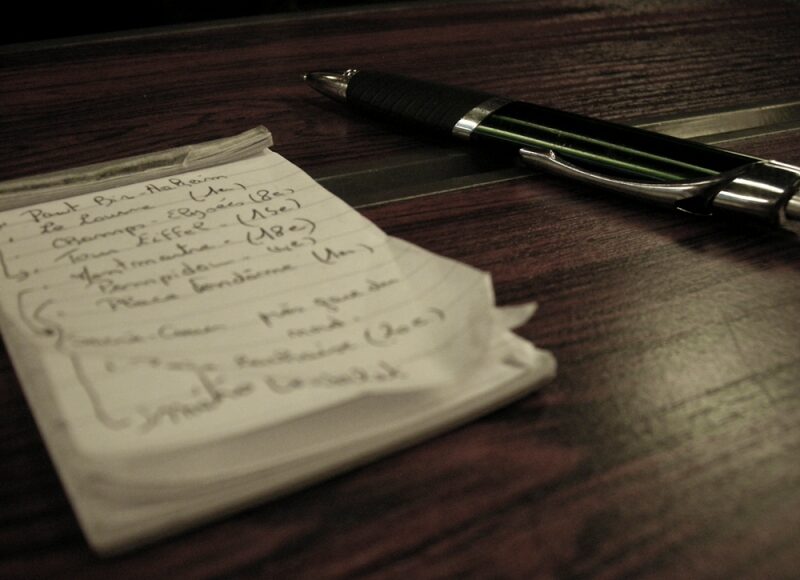 . Pont Bir-Hakeim
. Le Louvre (1er)
. Champs-Elysées (8e)
. Tour Eiffel. (15e)
. Montmartre. (18e)
Pompidou. 4e
. Place Vendôme (1er)
Sacré-Coeur près gare du
nord.
(20e)